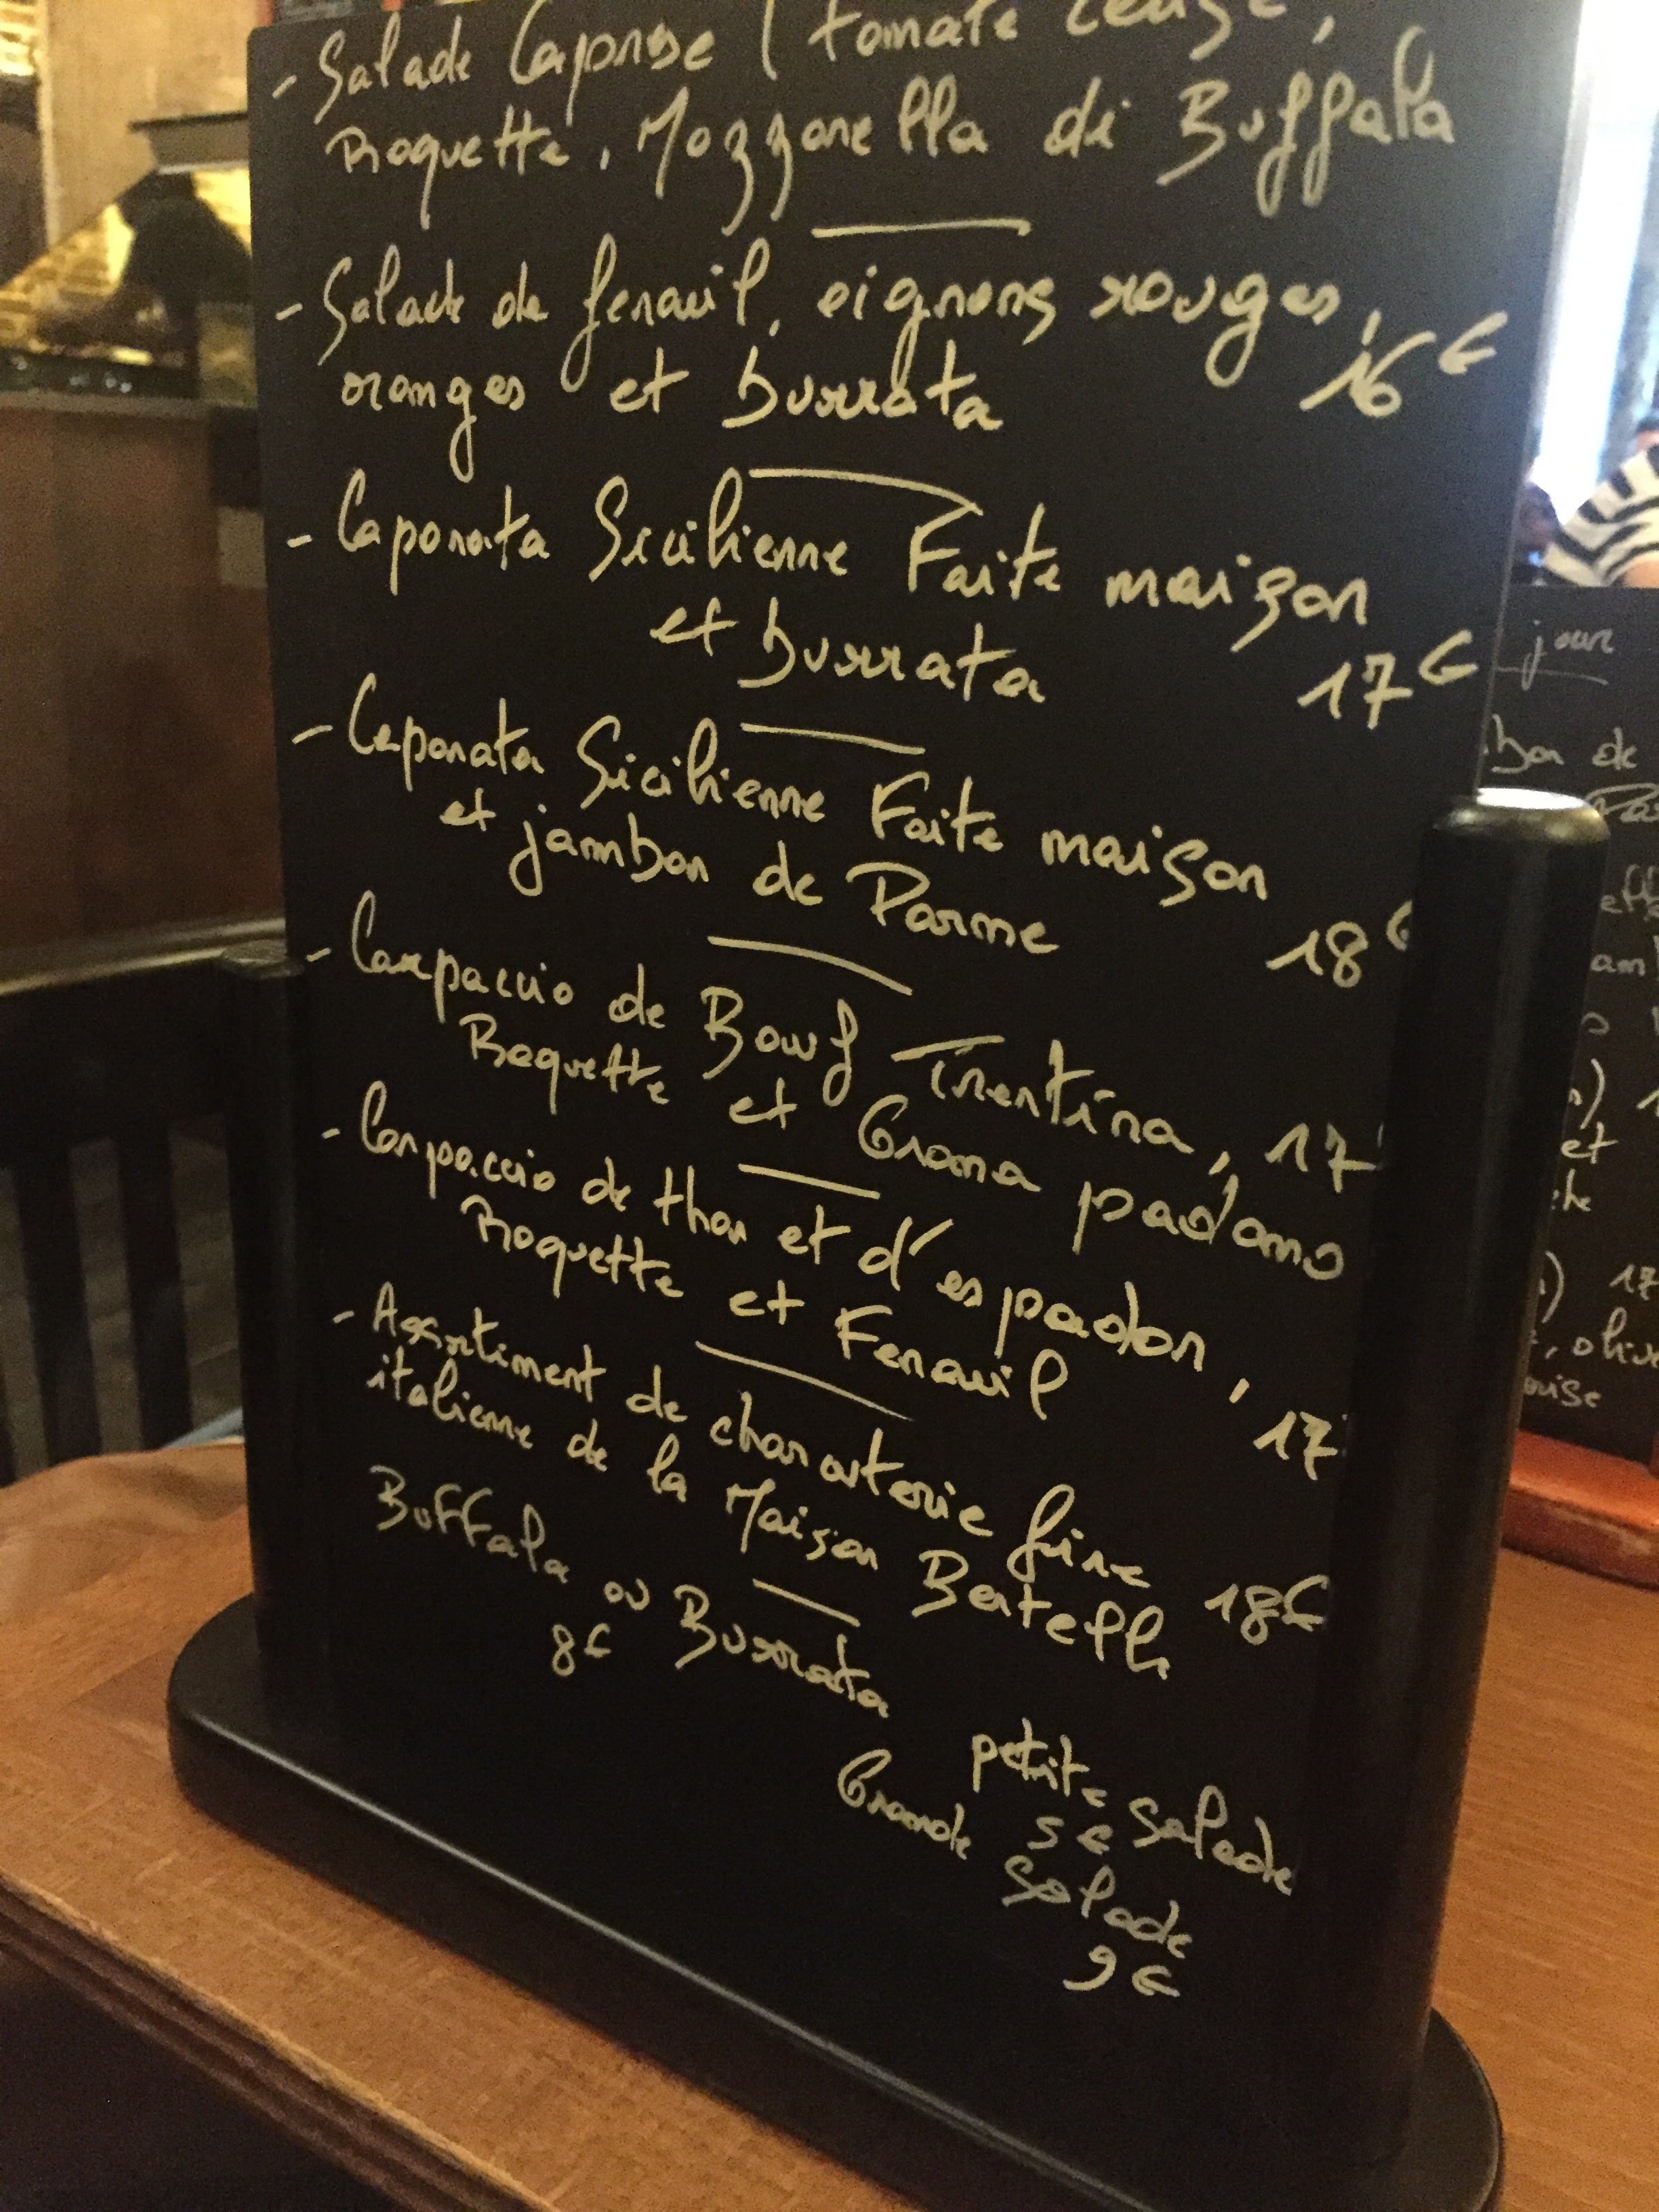 - Salade Caprese ( tomate
Roquette, Mozzarella di Buffala
- Salade de fenouil, oignons rouges,
oranges et burrata 16€
- Caponata Sicilienne Faite maison
et burrata 17€
- Caponata Sicilienne Faite maison
et jambon de Parme 18€
- Carpaccio de Bœuf Trentina, 17
Roquette et Grana padano
- Carpaccio de thon et d'espadon,
Roquette et Fenouil 17
- Assortiment de charcuterie fine
italienne de la Maison Bertelli 18€
Buffala ou Burrata
8€
petite Salade
5€
Grande Salade
9€
jour
de
et
17